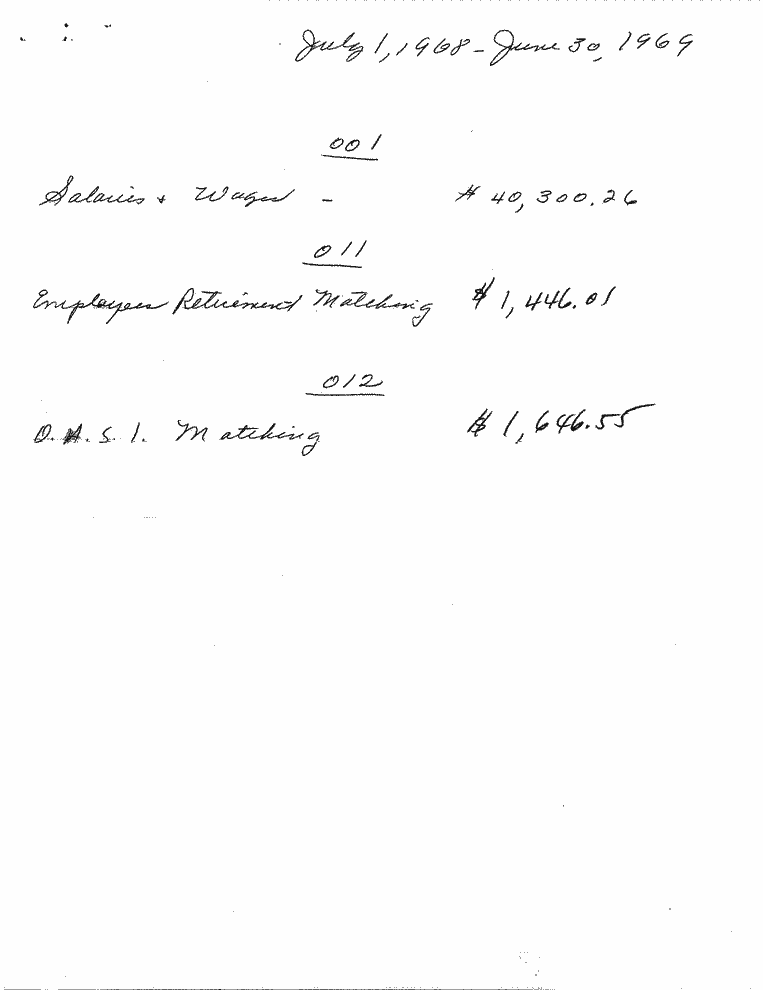 July 1, 1968 - June 30, 1969
001
Salaries + Wages - $ 40,300.26
011
Employees Retirement Matching $ 1,446.01
012
O.A.S.I. Matching $ 1,646.55